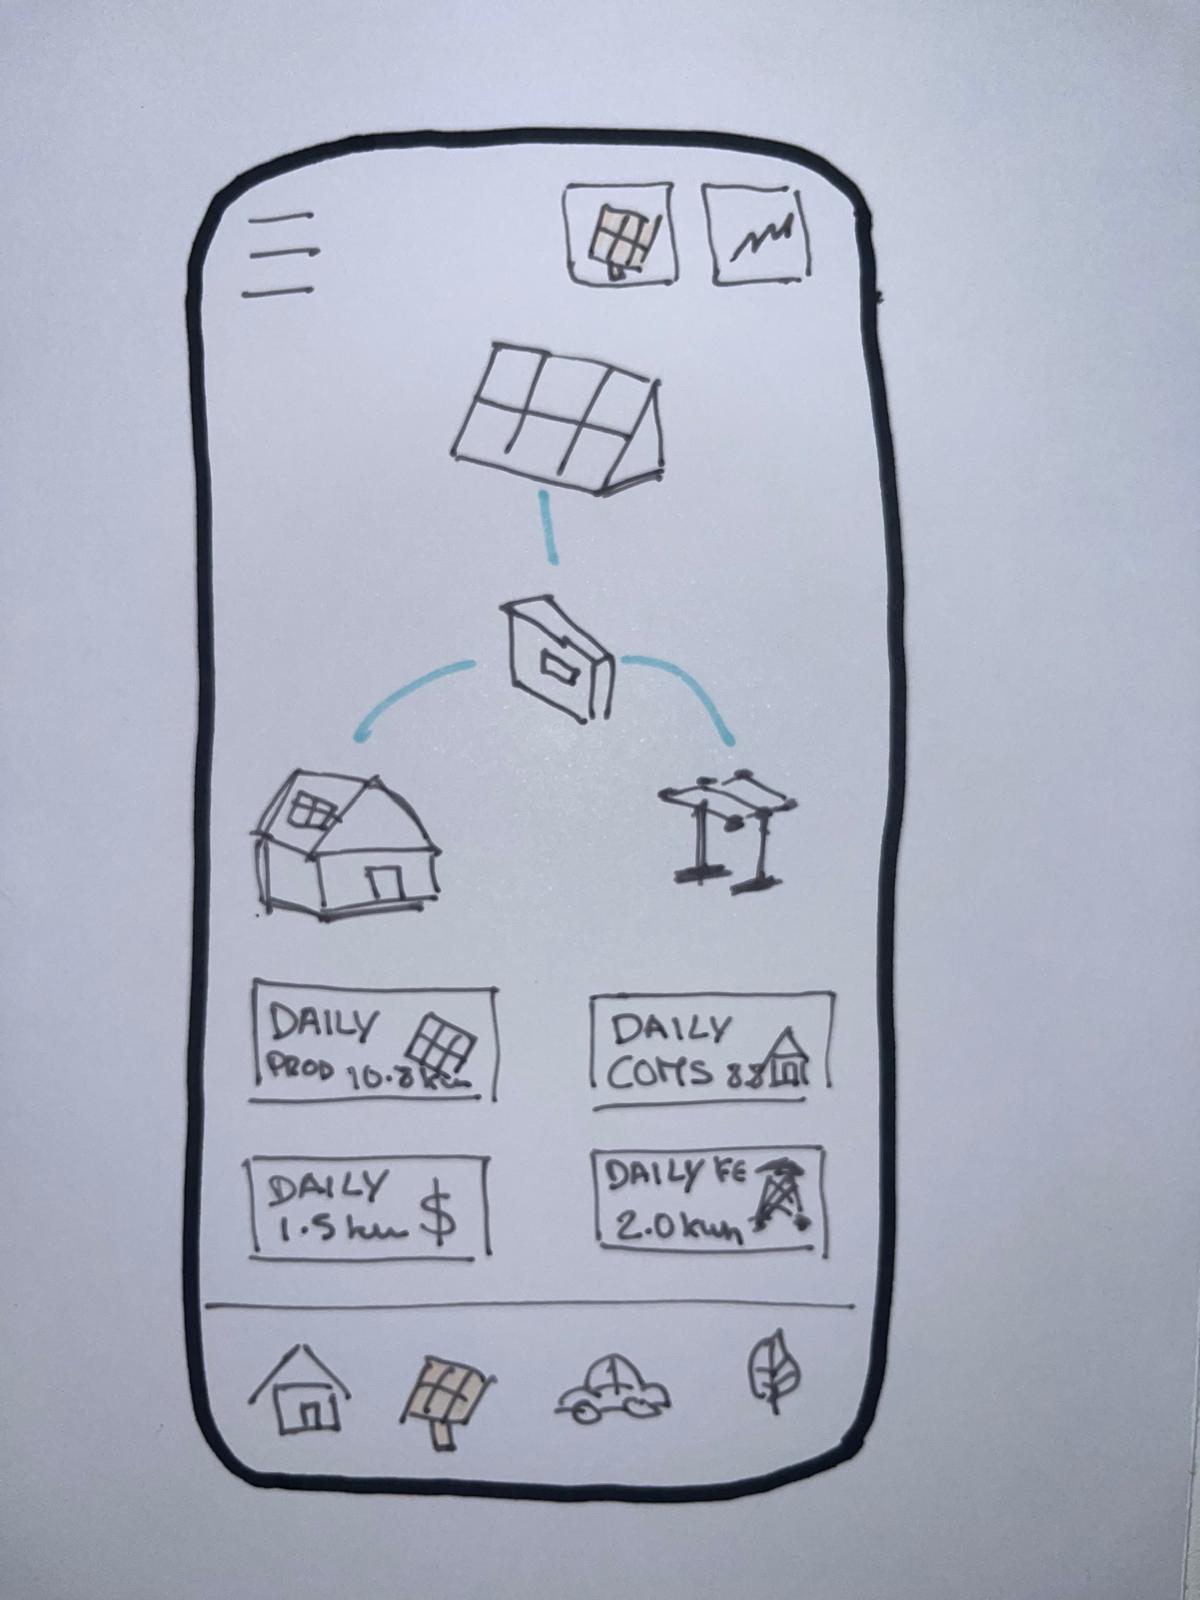 DAILY
PROD 10.8
DAILY
COMS
DAILY
1.5 kw $
DAILY FE
2.0 kwh